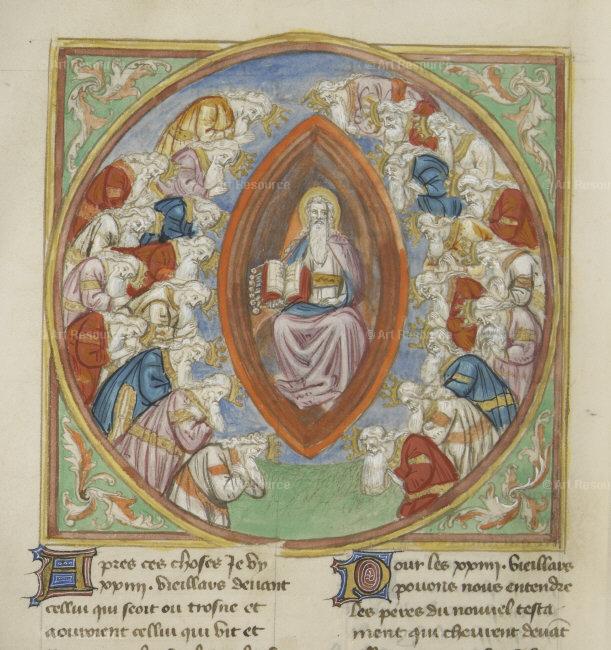 Apres ces choses Je vy
xxiiii. vieillars devant
cellui qui seoit ou trosne et
aouroient cellui qui vit et
Pour les xxiiii. vieillars
povons nous entendre
les peres du nouvel testa
ment qui cheurent devãt
© Art Resource